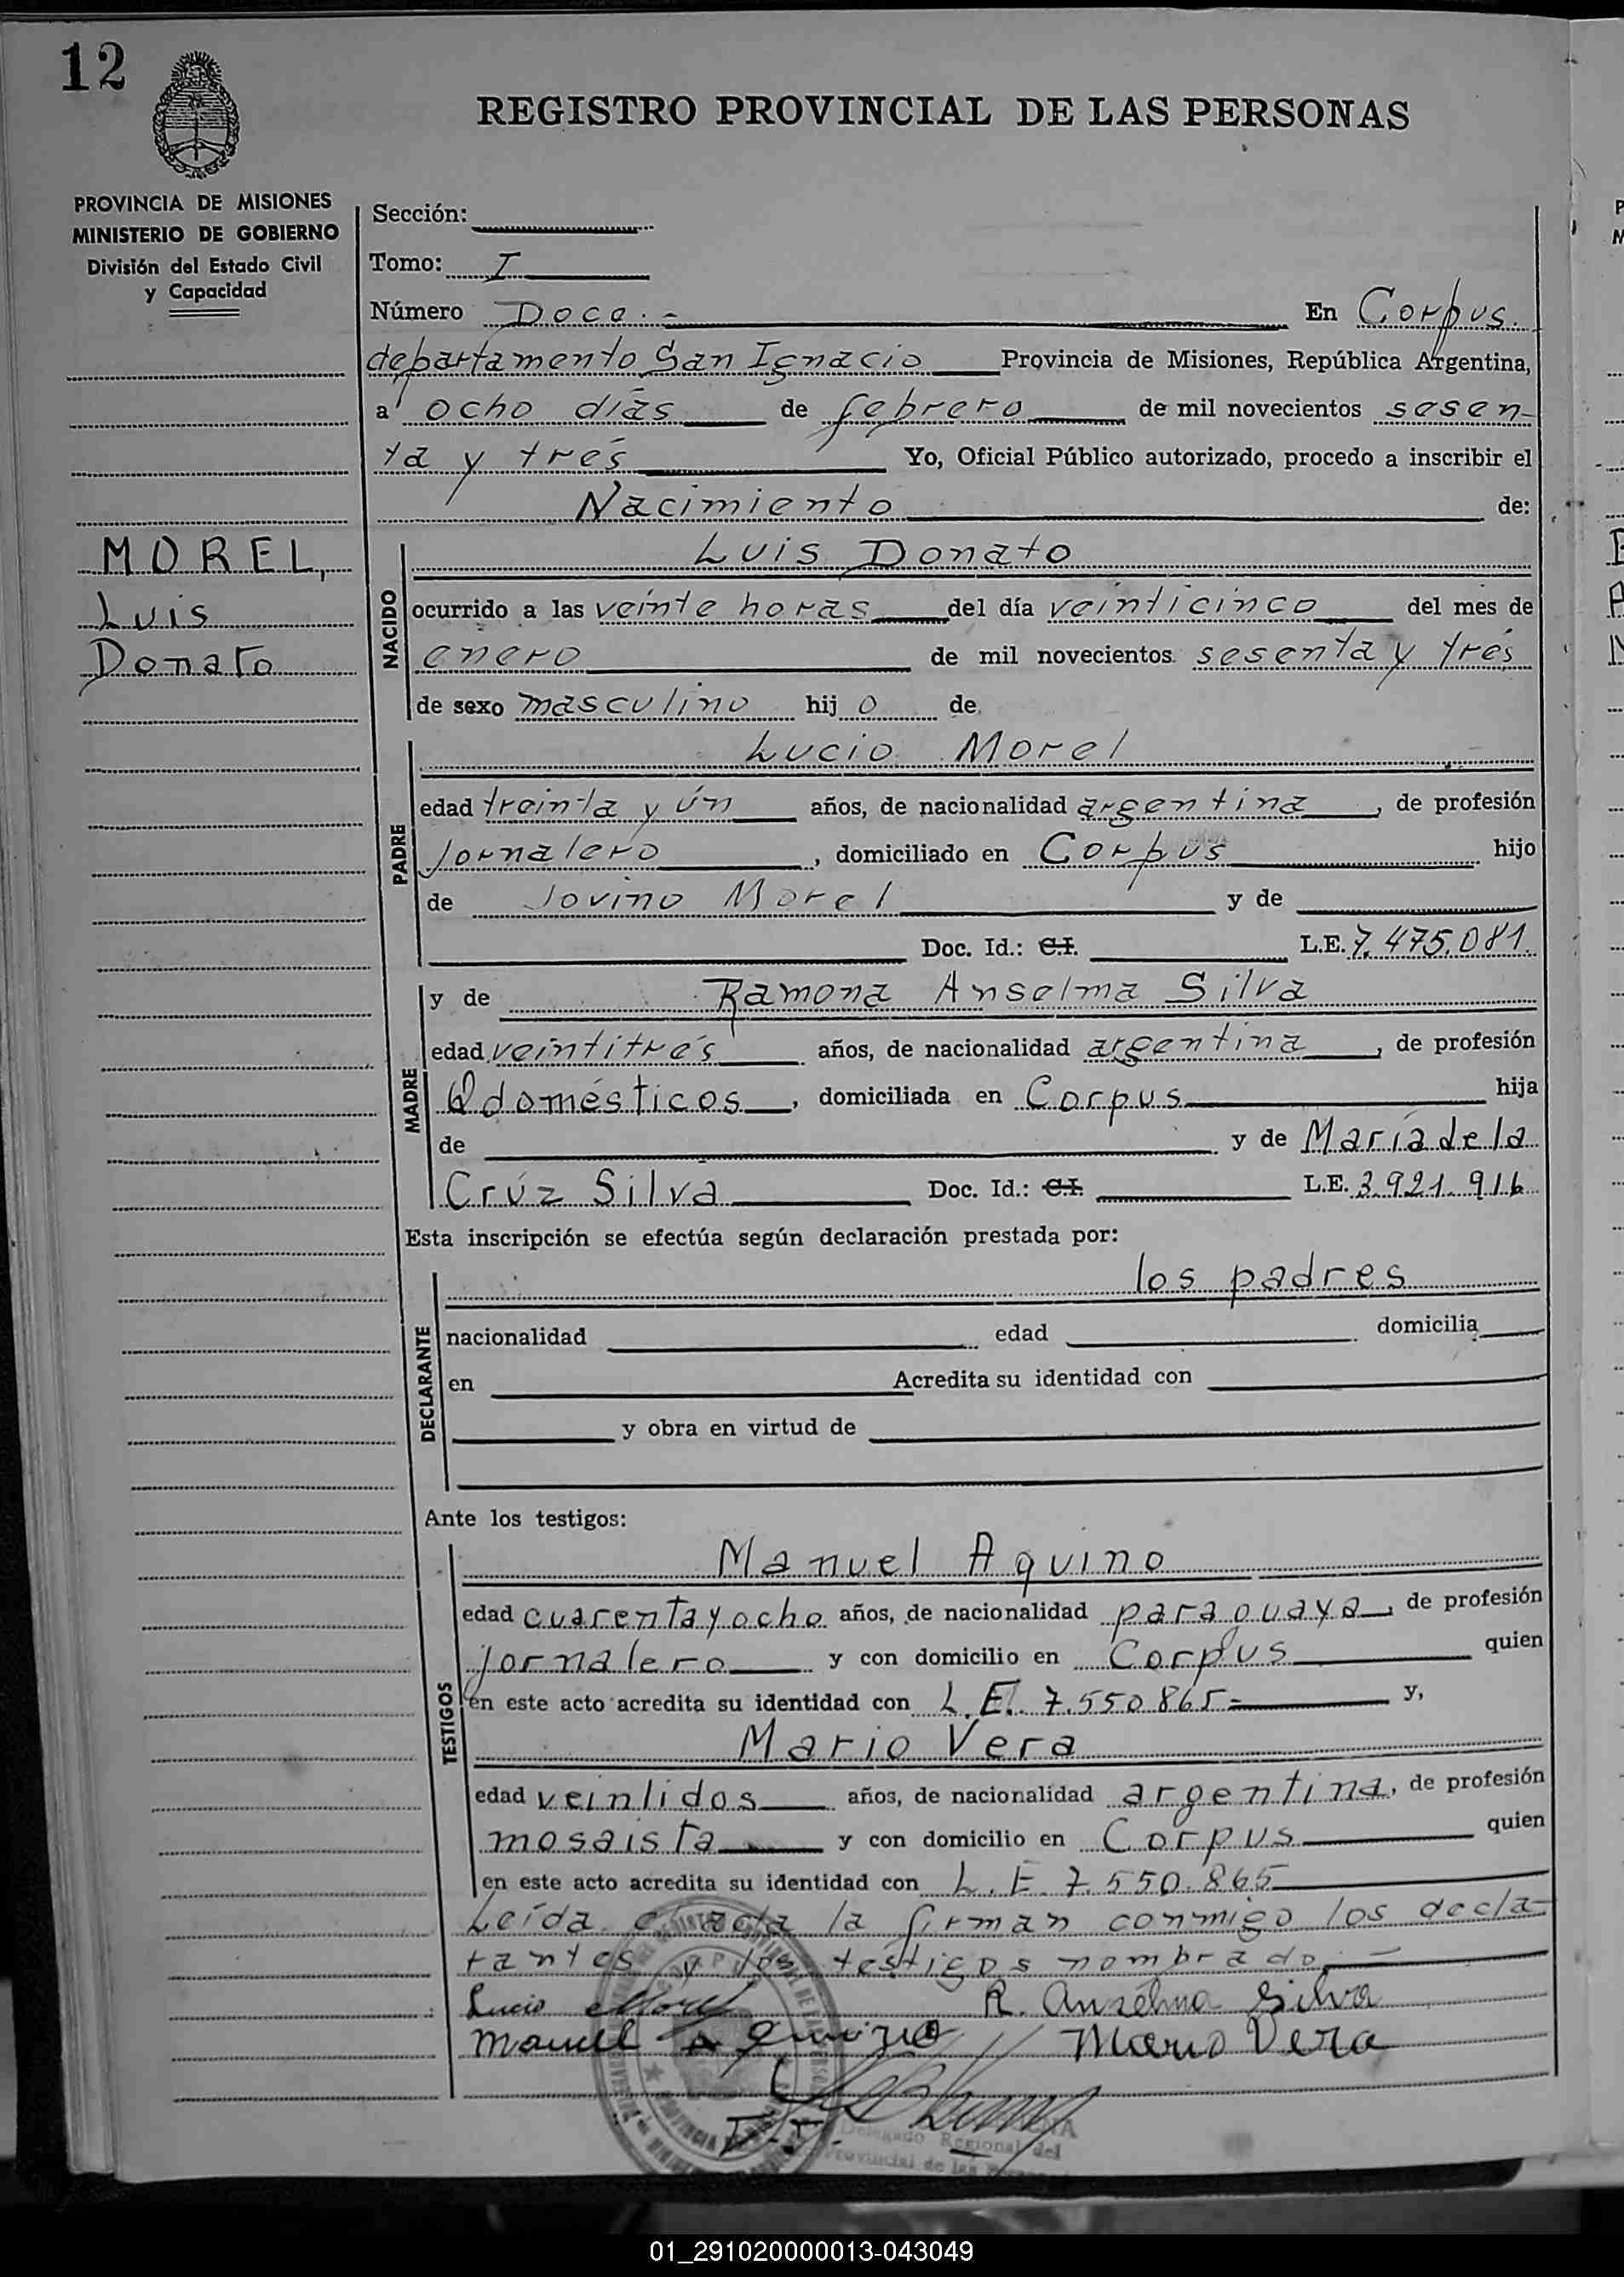 12
REGISTRO PROVINCIAL DE LAS PERSONAS
PROVINCIA DE MISIONES
MINISTERIO DE GOBIERNO
División del Estado Civil
y Capacidad
Sección:
Tomo: I
Número Doce.- En Corpus.
departamento San Ignacio Provincia de Misiones, República Argentina,
a ocho días de febrero de mil novecientos sesen-
ta y trés Yo, Oficial Público autorizado, procedo a inscribir el
Nacimiento de:
MOREL,
Luis
Donato
NACIDO
Luis Donato
ocurrido a las veinte horas del día veinticinco del mes de
enero de mil novecientos sesenta y trés
de sexo masculino hij o de
PADRE
Lucio Morel
edad treinta y ún años, de nacionalidad argentina, de profesión
Jornalero, domiciliado en Corpus hijo
de Jovino Morel y de
Doc. Id.: C.I. L.E. 7.475.081.
MADRE
y de Ramona Anselma Silva
edad veintitrés años, de nacionalidad argentina, de profesión
Q domésticos, domiciliada en Corpus hija
de y de María de la
Crúz Silva Doc. Id.: C.I. L.E. 3.921.916
Esta inscripción se efectúa según declaración prestada por:
DECLARANTE
los padres
nacionalidad edad domicilia
en Acredita su identidad con
y obra en virtud de
Ante los testigos:
TESTIGOS
Manuel Aquino
edad cuarenta y ocho años, de nacionalidad paraguaya, de profesión
jornalero y con domicilio en Corpus quien
en este acto acredita su identidad con L.E. 7.550.865- y,
Mario Vera
edad veintidos años, de nacionalidad argentina, de profesión
mosaista y con domicilio en Corpus quien
en este acto acredita su identidad con L.E. 7.550.865
Leída el acta la firman conmigo los decla-
rantes y los testigos nombrado.-
Lucio Morel R. Anselma Silva
Manuel Aquino Mario Vera
Delegado Regional del
Provincial de las
01_291020000013-043049